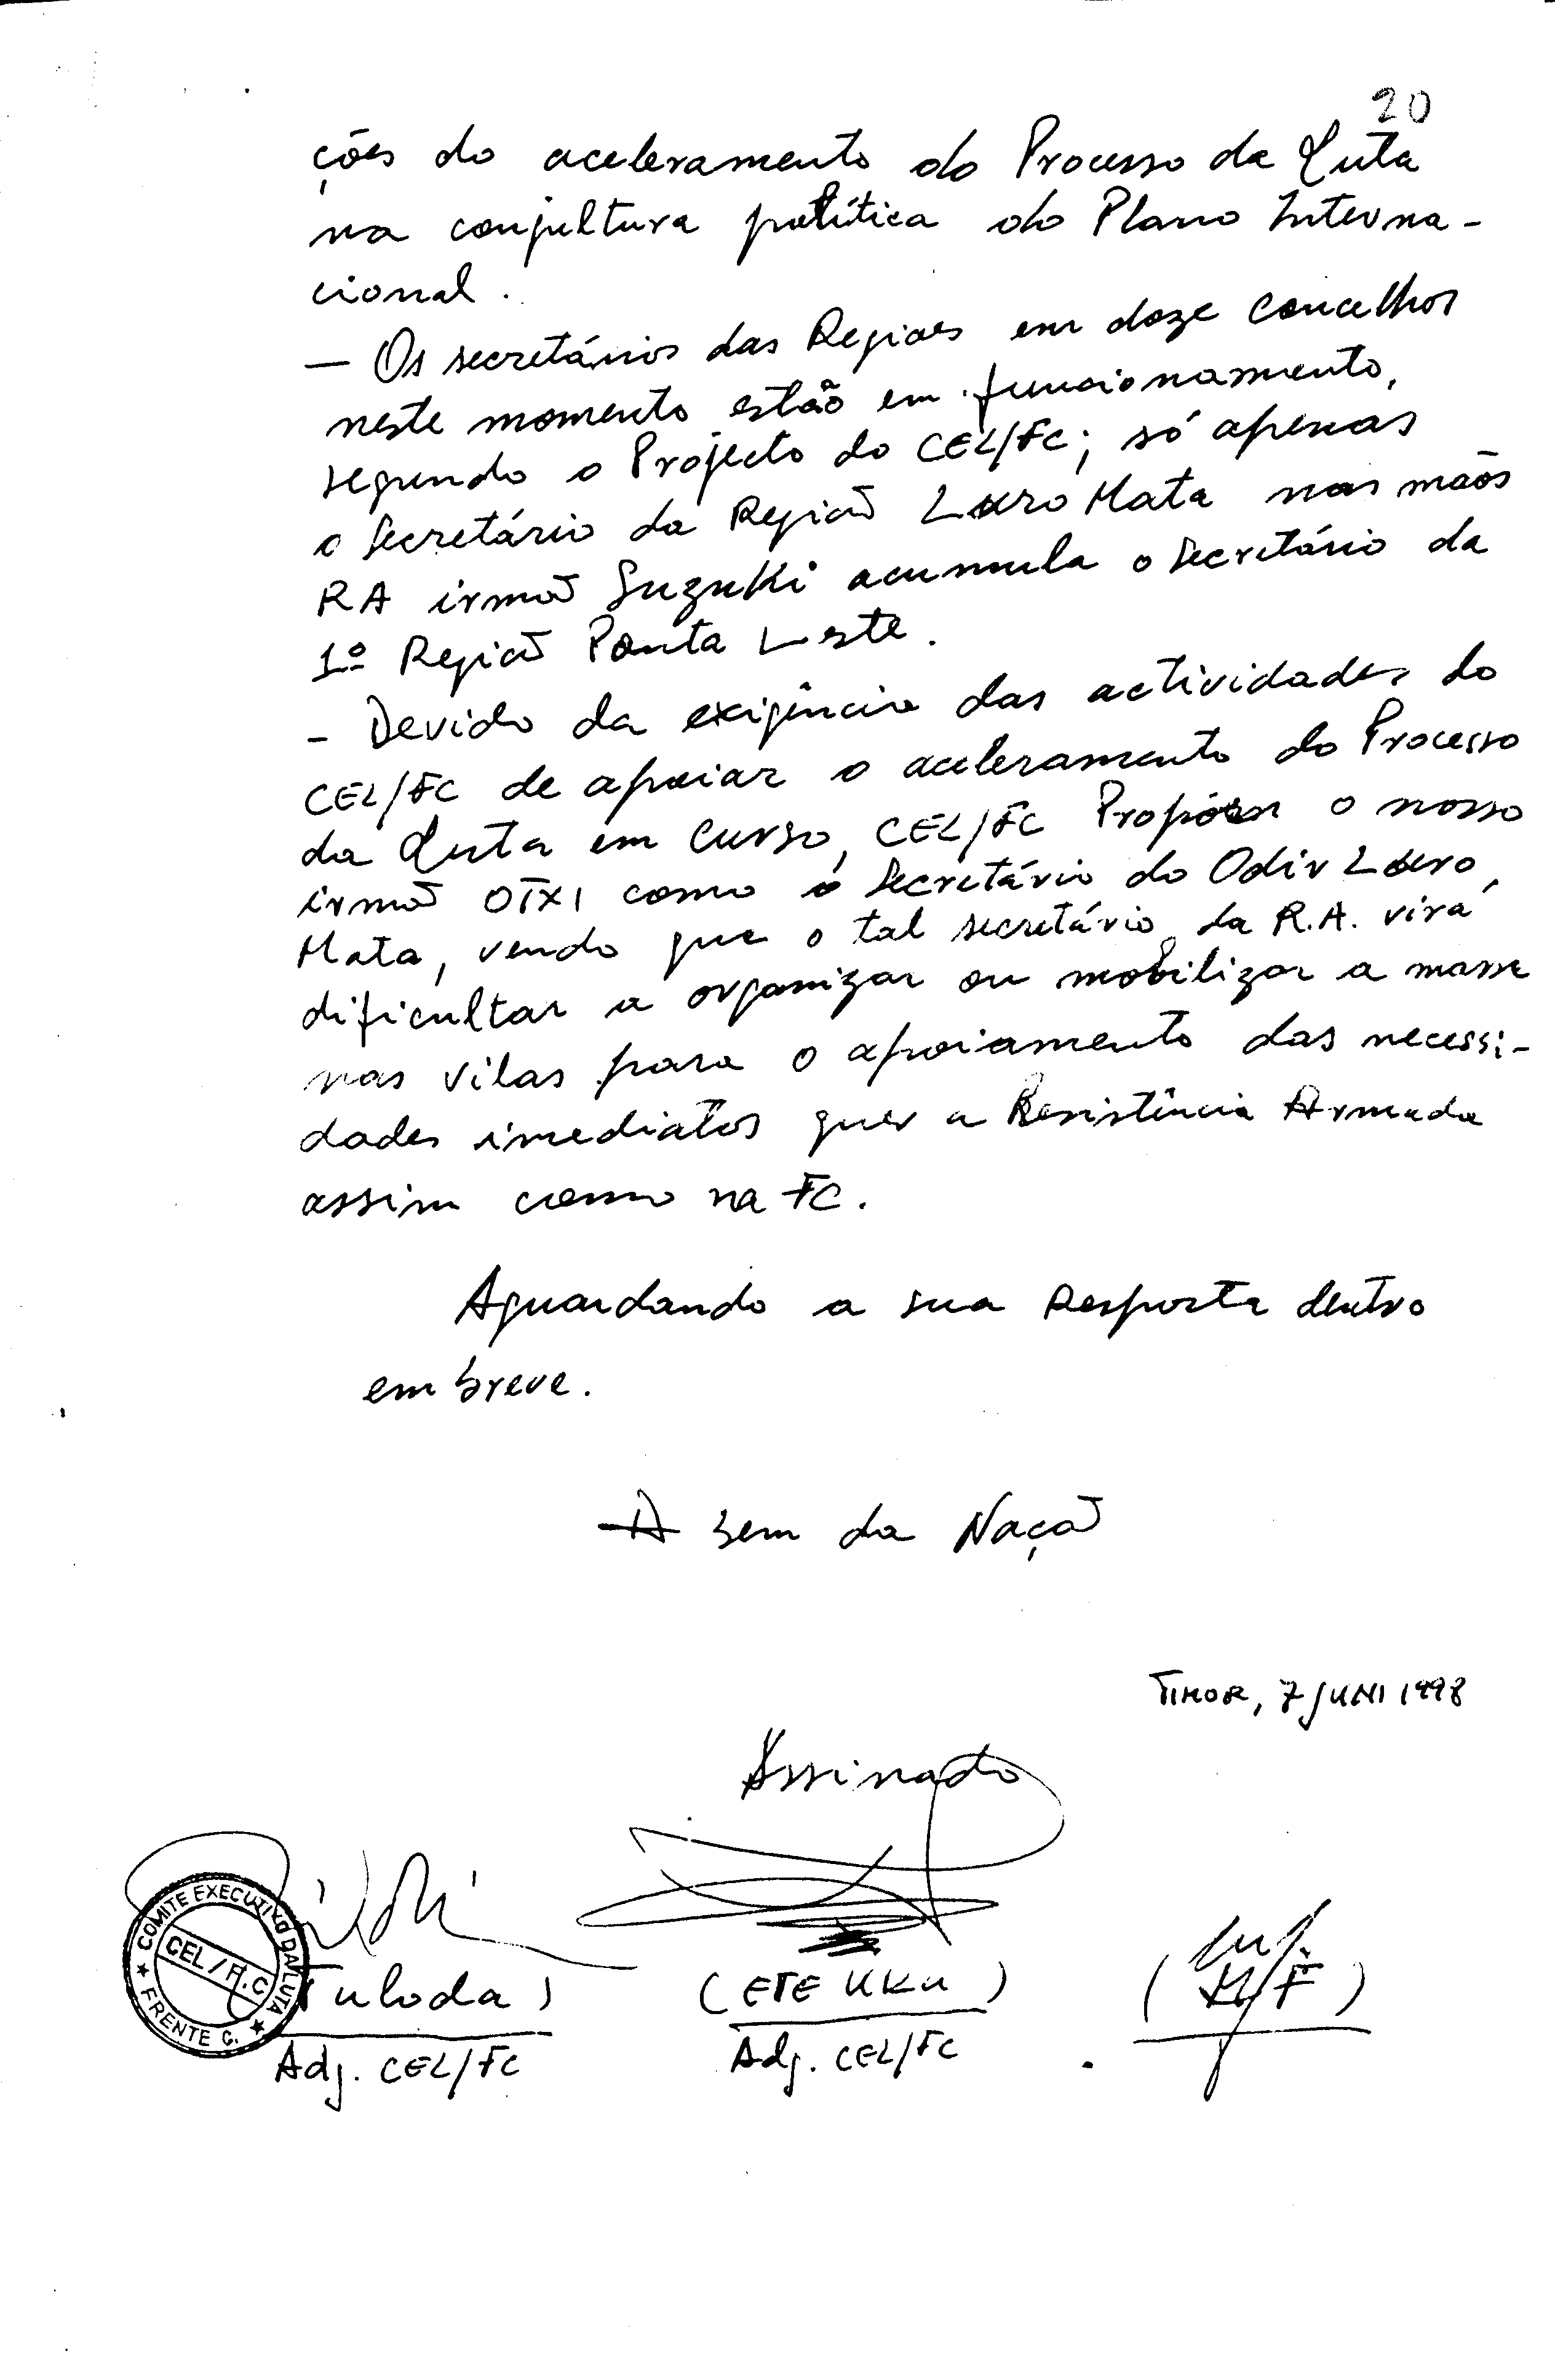 20
ções do aceleramento do Processo da Luta
na conjultura política do Plano Interna-
cional.
— Os secretários das Regioes em doze concelhos
neste momento estão em funcionamento,
segundo o Projecto do CEL/FC; só apenas
o Secretário da Região Loro Mata nas mãos
RA irmão Suzuki acumula o Secretário da
1º Região Ponta Leste.
- Devido da exigência das actividades do
CEL/FC de apoiar o aceleramento do Processo
da Luta em curso, CEL/FC Propõem o nosso
irmão OTXI como o Secretário do Odir Loero
Mata, vendo que o tal secretário da R.A. virá
dificultar a organizar ou mobilizar a massa
nas vilas para o apoiamento das necessi-
dades imediatos quer a Resistência Armada
assim como na FC.
Aguardando a sua Resposta dentro
em breve.
A bem da Nação
TIMOR, 7 JUNI 1998
Assinado
COMITE EXECUTIVO DA LUTA
CEL/F.C
FRENTE C.
Tuloda) (ETE UKU) (
Adj. CEL/FC Adj. CEL/FC